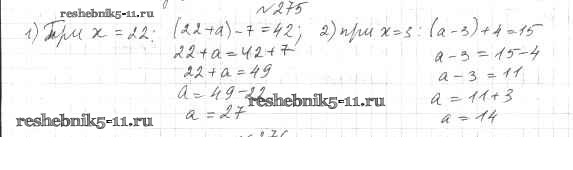 №275
reshebnik5-11.ru
1) При x = 22; (22+a)-7=42; 2) при x=3: (a-3)+4=15
22+a=42+7 a-3=15-4
22+a=49 a-3=11
a=49-22 a=11+3
reshebnik5-11.ru
a=27 a=14
reshebnik5-11.ru